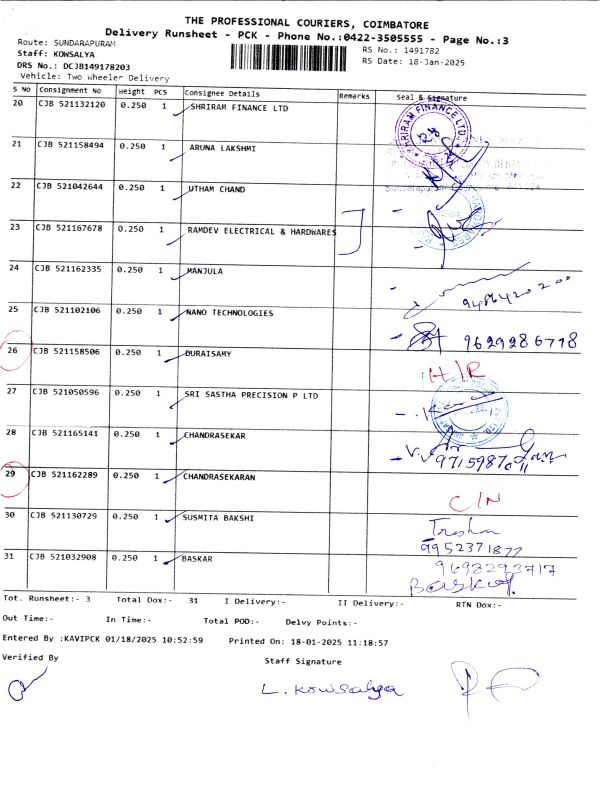 THE PROFESSIONAL COURIERS, COIMBATORE
Delivery Runsheet - PCK - Phone No.:0422-3505555 - Page No.:3
Route: SUNDARAPURAM
RS No.: 1491782
Staff: KOWSALYA
RS Date: 18-Jan-2025
DRS No.: DCJB149178203
Vehicle: Two Wheeler Delivery
S No Consignment No Weight PCS Consignee Details Remarks Seal & signature
20 CJB 521132120 0.250 1 SHRIRAM FINANCE LTD
SHRIRAM FINANCE LTD.
21 CJB 521158494 0.250 1 ARUNA LAKSHMI
22 CJB 521042644 0.250 1 UTHAM CHAND
23 CJB 521167678 0.250 1 RAMDEV ELECTRICAL & HARDWARES
24 CJB 521162335 0.250 1 MANJULA
9486420200
25 CJB 521102106 0.250 1 NANO TECHNOLOGIES
9629286778
26 CJB 521158506 0.250 1 DURAISAMY
H/R
27 CJB 521050596 0.250 1 SRI SASTHA PRECISION P LTD
28 CJB 521165141 0.250 1 CHANDRASEKAR
29 CJB 521162289 0.250 1 CHANDRASEKARAN
C/N
30 CJB 521130729 0.250 1 SUSMITA BAKSHI
9952371877
31 CJB 521032908 0.250 1 BASKAR
9698293717
Baskar
Tot. Runsheet:- 3 Total Dox:- 31 I Delivery:- II Delivery:- RTN Dox:-
Out Time:- In Time:- Total POD:- Delvy Points:-
Entered By :KAVIPCK 01/18/2025 10:52:59 Printed On: 18-01-2025 11:18:57
Verified By Staff Signature
L. Kowsalya